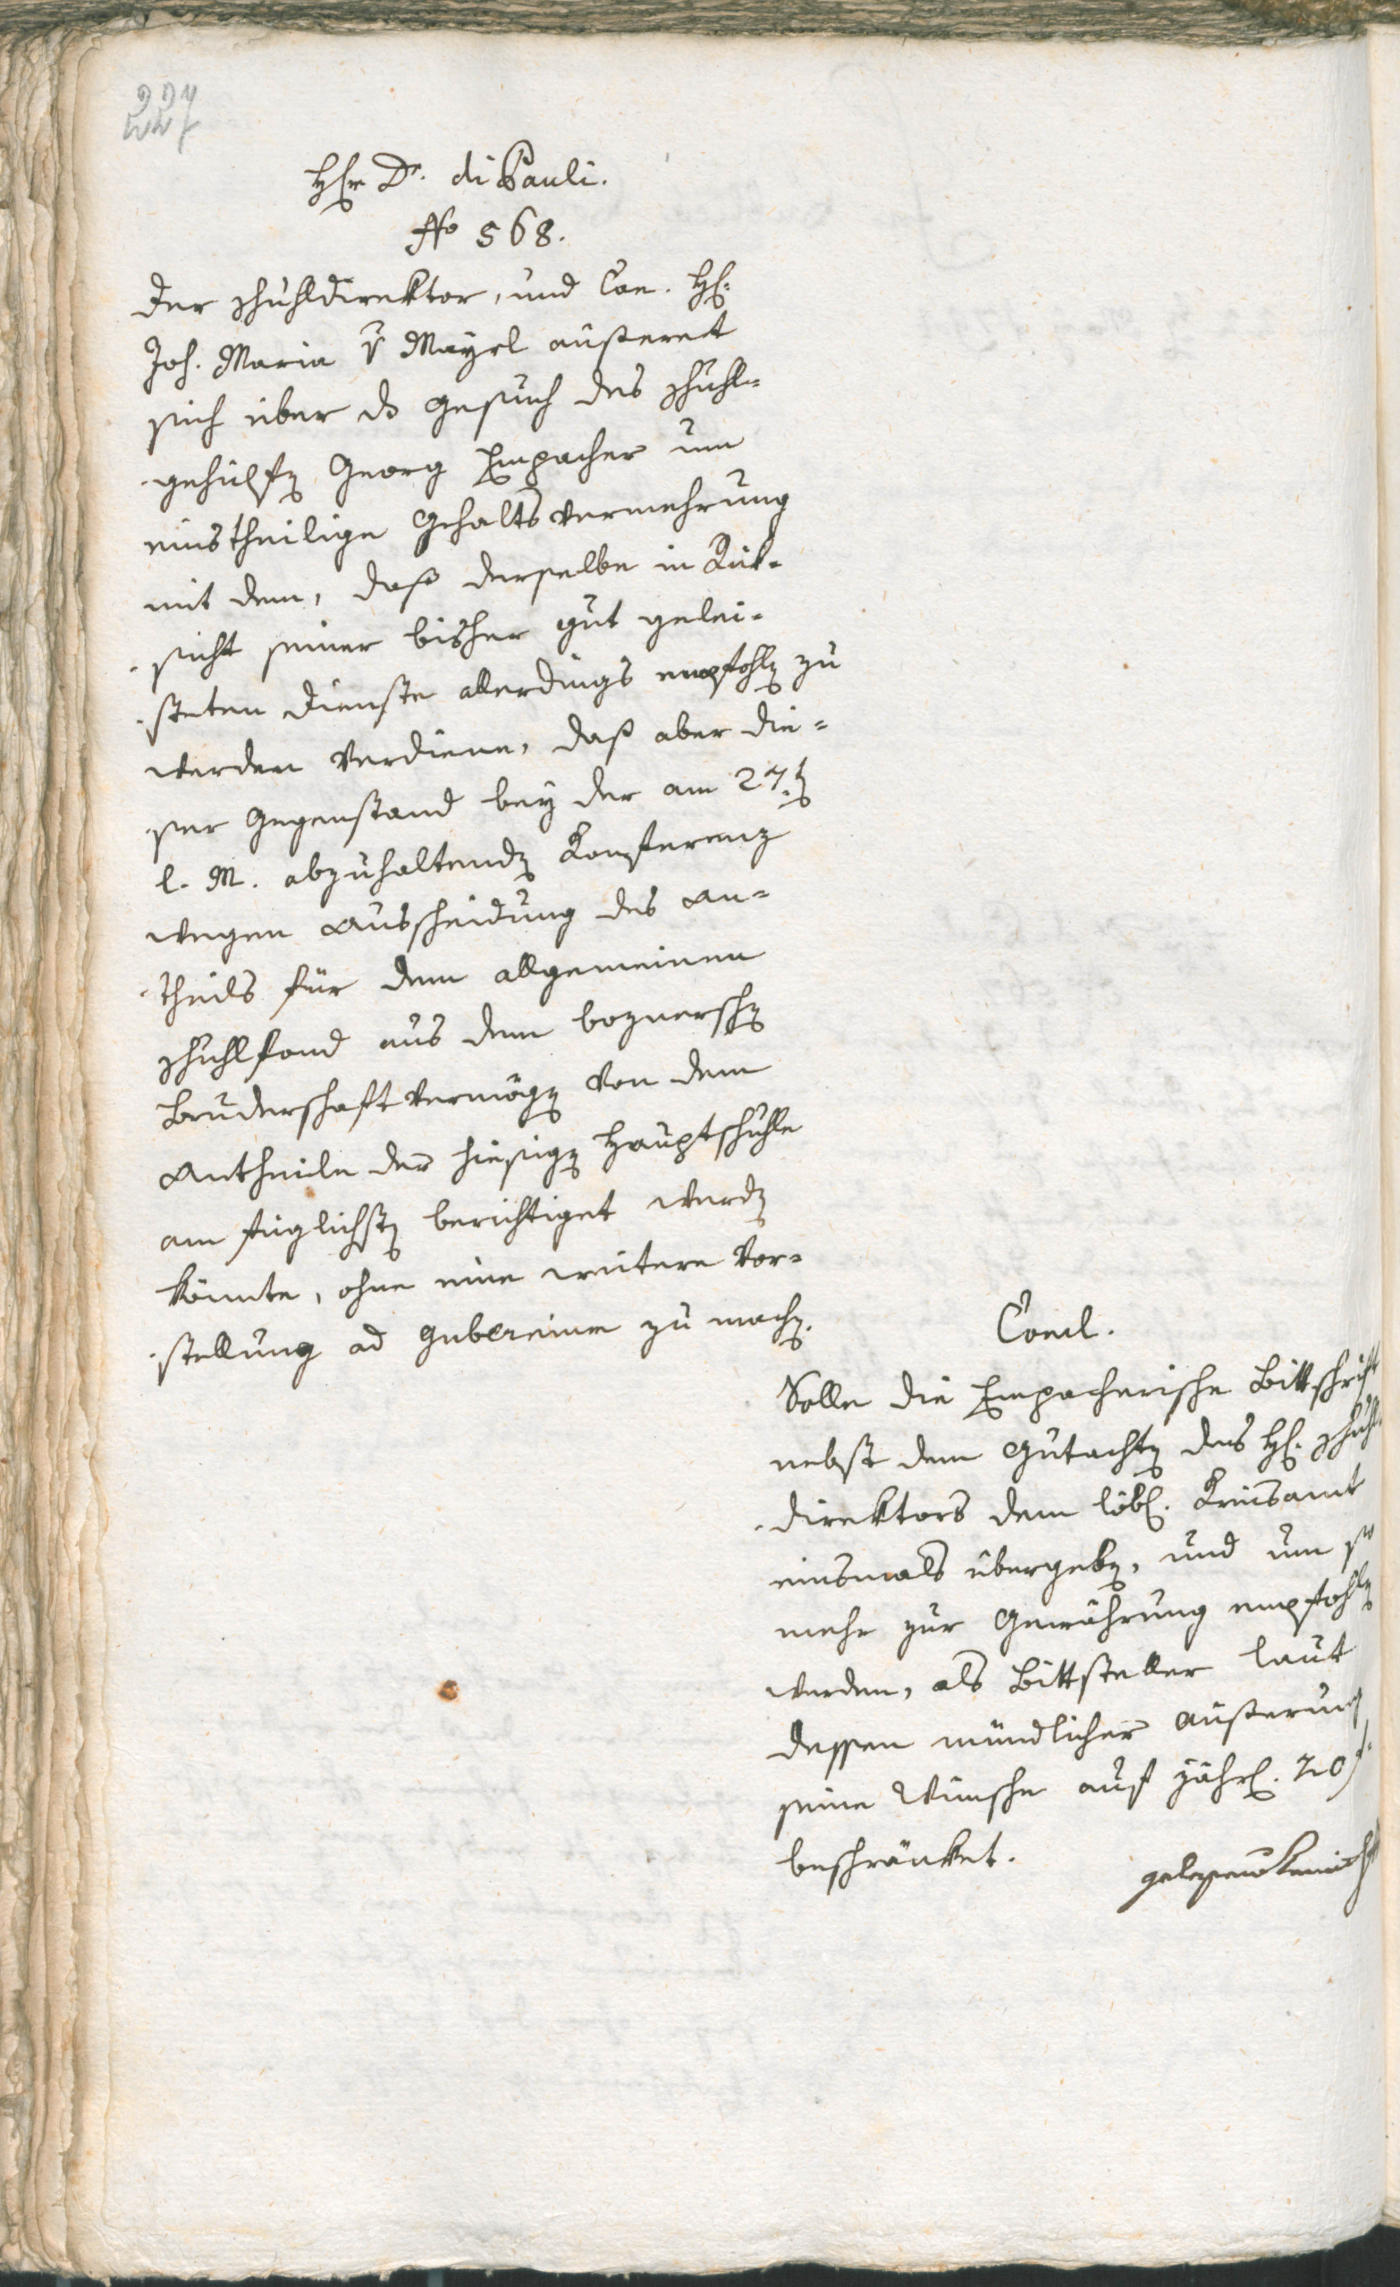 Hr Dr. di Pauli.
No 568.
Der Schuhldirektor, und Con. H:
Joh. Maria v Mayrl äusseret
sich über ds Gesuch des Schuhl=
gehülfen Georg Empacher um
einstheilige Gehalts vermehrung
mit dem, daß derselbe in Rük-
sicht seiner bisher gut gelei-
steten Dienste allerdings empfohlen zu
werden verdiene, daß aber die-
ser Gegenstand bey der am 27.ten
l. M. abzuhaltenden Konferenz
wegen Ausscheidung des An-
theils für dem allgemeinen
Schuhlfond aus dem boznerschen
Bruderschaftvermögen von dem
Antheile der hiesigen Hauptschuhle
am füglichsten berichtiget werden
könnte, ohne eine weitere Vor-
stellung ad Gubernium zu machen.
Concl.
Solle die Empacherische Bittschrift
nebst dem Gutachten des H. Schuhl-
direktors dem löbl. Kreisamt
einsmals übergeben, und um so
mehr zur Gewährung empfohlen
werden, als Bittsteller laut
dessen mündlicher Äusserung
seine Wünsche auf jährl. 20 f.
beschränket.